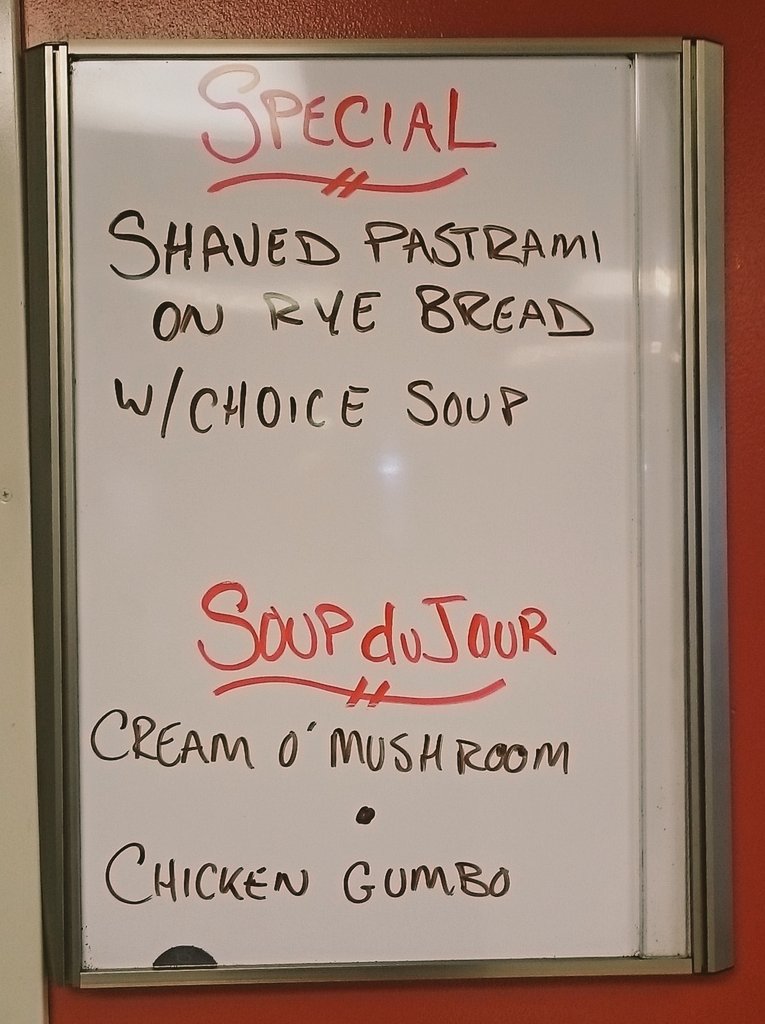 SPECIAL
SHAVED PASTRAMI
ON RYE BREAD
W/CHOICE SOUP
SOUP du JOUR
CREAM O' MUSHROOM
•
CHICKEN GUMBO